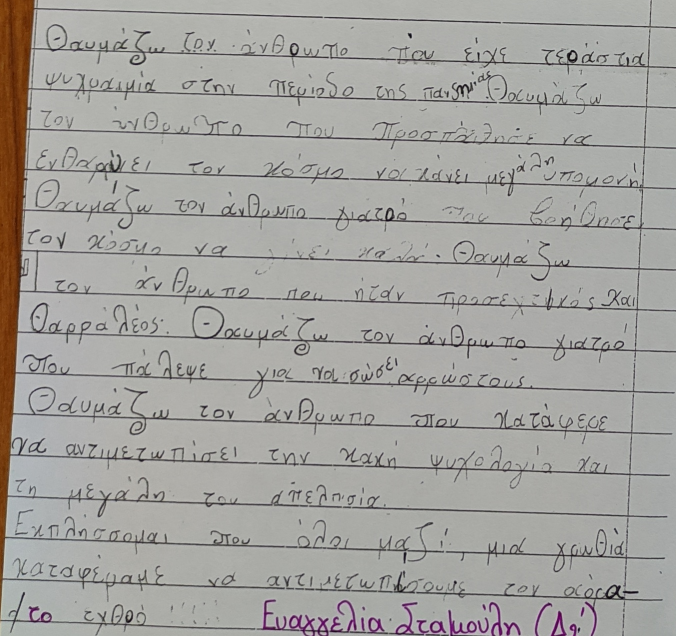 Θαυμάζω τον άνθρωπο που είχε τεράστια
ψυχραιμία στην περίοδο της πανδημίας. Θαυμάζω
τον άνθρωπο που προσπάθησε να
ενθαρρύνει τον κόσμο να κάνει μεγάλη υπομονή.
Θαυμάζω τον άνθρωπο γιατρό που βοήθησε
τον κόσμο να γίνει καλά. Θαυμάζω
τον άνθρωπο που ήταν προσεχτικός και
θαρράλέος. Θαυμάζω τον άνθρωπο γιατρό
που πάλεψε για να σώσει αρρώστους.
Θαυμάζω τον άνθρωπο που κατάφερε
να αντιμετωπίσει την κακή ψυχολογία και
τη μεγάλη του απελπισία.
Εκπλήσσομαι που όλοι μαζί, μια γρωθιά
καταφέραμε να αντιμετωπίσουμε τον αόρα-
το εχθρό !!!!! Ευαγγελία Σταμούλη (Δ2')